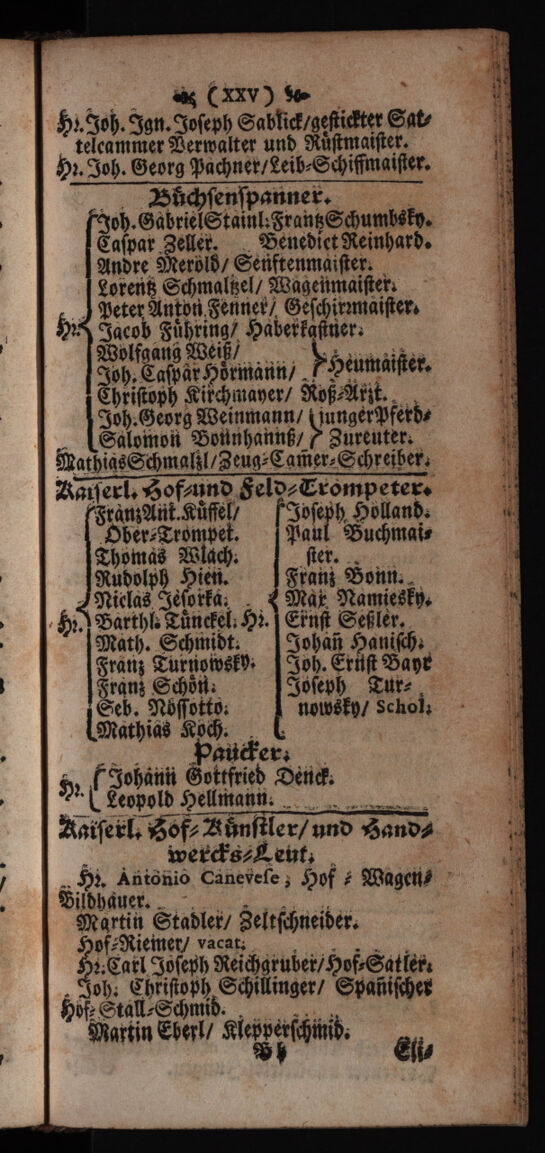 (XXV)
Hr. Joh. Ign. Joseph Sablick/gestickter Sat-
telcammer Verwalter und Rüstmaister.
Hr. Joh. Georg Pachner/Leib-Schiffmaister.
Büchsenspanner.
Joh. Gabriel Stainl. Frantz Schumbsky.
Caspar Zeller. Benedict Reinhard.
Andre Merold/ Senftenmaister.
Lorentz Schmaltzel/ Wagenmaister.
Peter Anton Fenner/ Geschirrmaister.
Hr. Jacob Führing/ Haberkastner.
Wolfgang Weiß/
Joh. Caspar Hörmann/ Heumaister.
Christoph Kirchmayer/ Roß-Arzt.
Joh. Georg Weinmann/ junger Pferd-
Salomon Bonnhannß/ Zureuter.
Mathias Schmalzl/Zeug-Cam̃er-Schreiber.
Kaiserl. Hof-und Feld-Trompeter.
Franz Ant. Küffel/
Ober-Trompet.
Thomas Wlach.
Rudolph Hien.
Niclas Jesorka.
Hr. Barthl. Tünckel.
Math. Schmidt.
Franz Turnowsky.
Franz Schön.
Seb. Nossotto.
Mathias Koch.
Joseph Holland.
Paul Buchmai-
ster.
Franz Bonn.
Max Namiesky.
Hr. Ernst Seßler.
Johañ Hanisch.
Joh. Ernst Bayr
Joseph Tur-
nowsky/ Schol.
Paucker.
Hr. Johann Gottfried Denck.
Leopold Hellmann.
Kaiserl. Hof-Künstler/ und Hand-
wercks-Leut.
Hr. Antonio Canevese, Hof-Wagen-
Bildhauer.
Martin Stadler/ Zeltschneider.
Hof-Riemer/ vacat.
Hr. Carl Joseph Reichgruber/Hof-Satler.
Joh. Christoph Schillinger/ Spañischer
Hof-Stall-Schmid.
Martin Eberl/ Klepperschmid.
B b Eli-